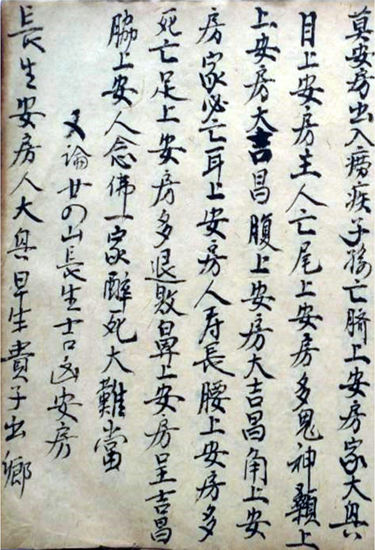 莫安房出入痨疾子孫亡臍上安房家大興
目上安房主人亡尾上安房多鬼神顙上
上安房大吉昌腹上安房大吉昌角上安
房家必亡耳上安房人寿長腰上安房多
死亡足上安房多退敗鼻上安房呈吉昌
脇上安人念佛一家醉死大難當
又論廿四山長生吉凶安房
長生安房人大興早生貴子出鄉